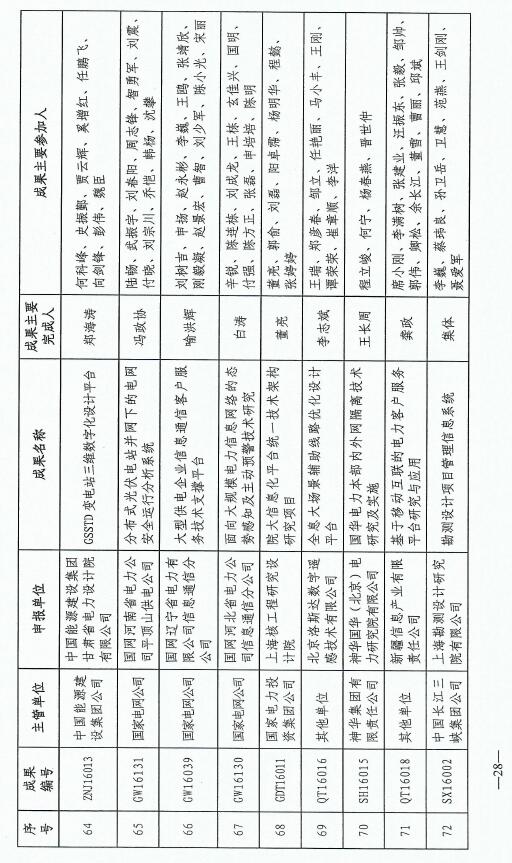 序号 成果编号 主管单位 申报单位 成果名称 成果主要完成人 成果主要参加人
64 ZNJ16013 中国能源建设集团公司 中国能源建设集团甘肃省电力设计院有限公司 GSSTD变电站三维数字化设计平台 郑海涛 何科峰、史振鄞、贾云辉、奚增红、任鹏飞、向剑锋、彭伟、魏臣
65 GW16131 国家电网公司 国网河南省电力公司平顶山供电公司 分布式光伏电站并网下的电网安全运行分析系统 冯政协 陆畅、武振宇、刘春阳、周志锋、智勇军、刘震、付晓、刘宗川、乔恺、韩杨、沈攀
66 GW16039 国家电网公司 国网辽宁省电力有限公司信息通信分公司 大型供电企业信息通信客户服务技术支撑平台 喻洪辉 刘树吉、申扬、赵永彬、李巍、王鸥、张靖欣、刚毅凝、赵景宏、曹智、刘少军、陈小光、宋丽
67 GW16130 国家电网公司 国网河北省电力公司信息通信分公司 面向大规模电力信息网络的态势感知及主动预警技术研究 白涛 辛锐、陈连栋、刘成龙、王栋、玄佳兴、国明、付强、陈方正、张磊、申培培、陈明
68 GDT16011 国家电力投资集团公司 上海核工程研究设计院 院大信息化平台统一技术架构研究项目 董亮 董亮、郭俞、刘磊、阳卓霈、杨明华、程懿、张婷婷
69 QT16016 其他单位 北京洛斯达数字遥感技术有限公司 全息大场景辅助线路优化设计平台 李志斌 王瑞、郑彦春、邹立、任艳丽、马小丰、王刚、谭荣荣、崔章顺、李洋
70 SH16015 神华集团有限责任公司 神华国华（北京）电力研究院有限公司 国华电力本部内外网隔离技术研究及实施 王长周 程立峻、何宁、杨春燕、晋世仲
71 QT16018 其他单位 新疆信息产业有限责任公司 基于移动互联的电力客户服务平台研究与应用 龚政 席小刚、李满树、张建业、汪振东、张毅、邹帅、郭伟、卿松、余长江、董雷、曹丽、邱斌
72 SX16002 中国长江三峡集团公司 上海勘测设计研究院有限公司 勘测设计项目管理信息系统 集体 李巍、蔡玮良、孙卫岳、卫慧、范燕、王剑刚、聂爱军
—28—